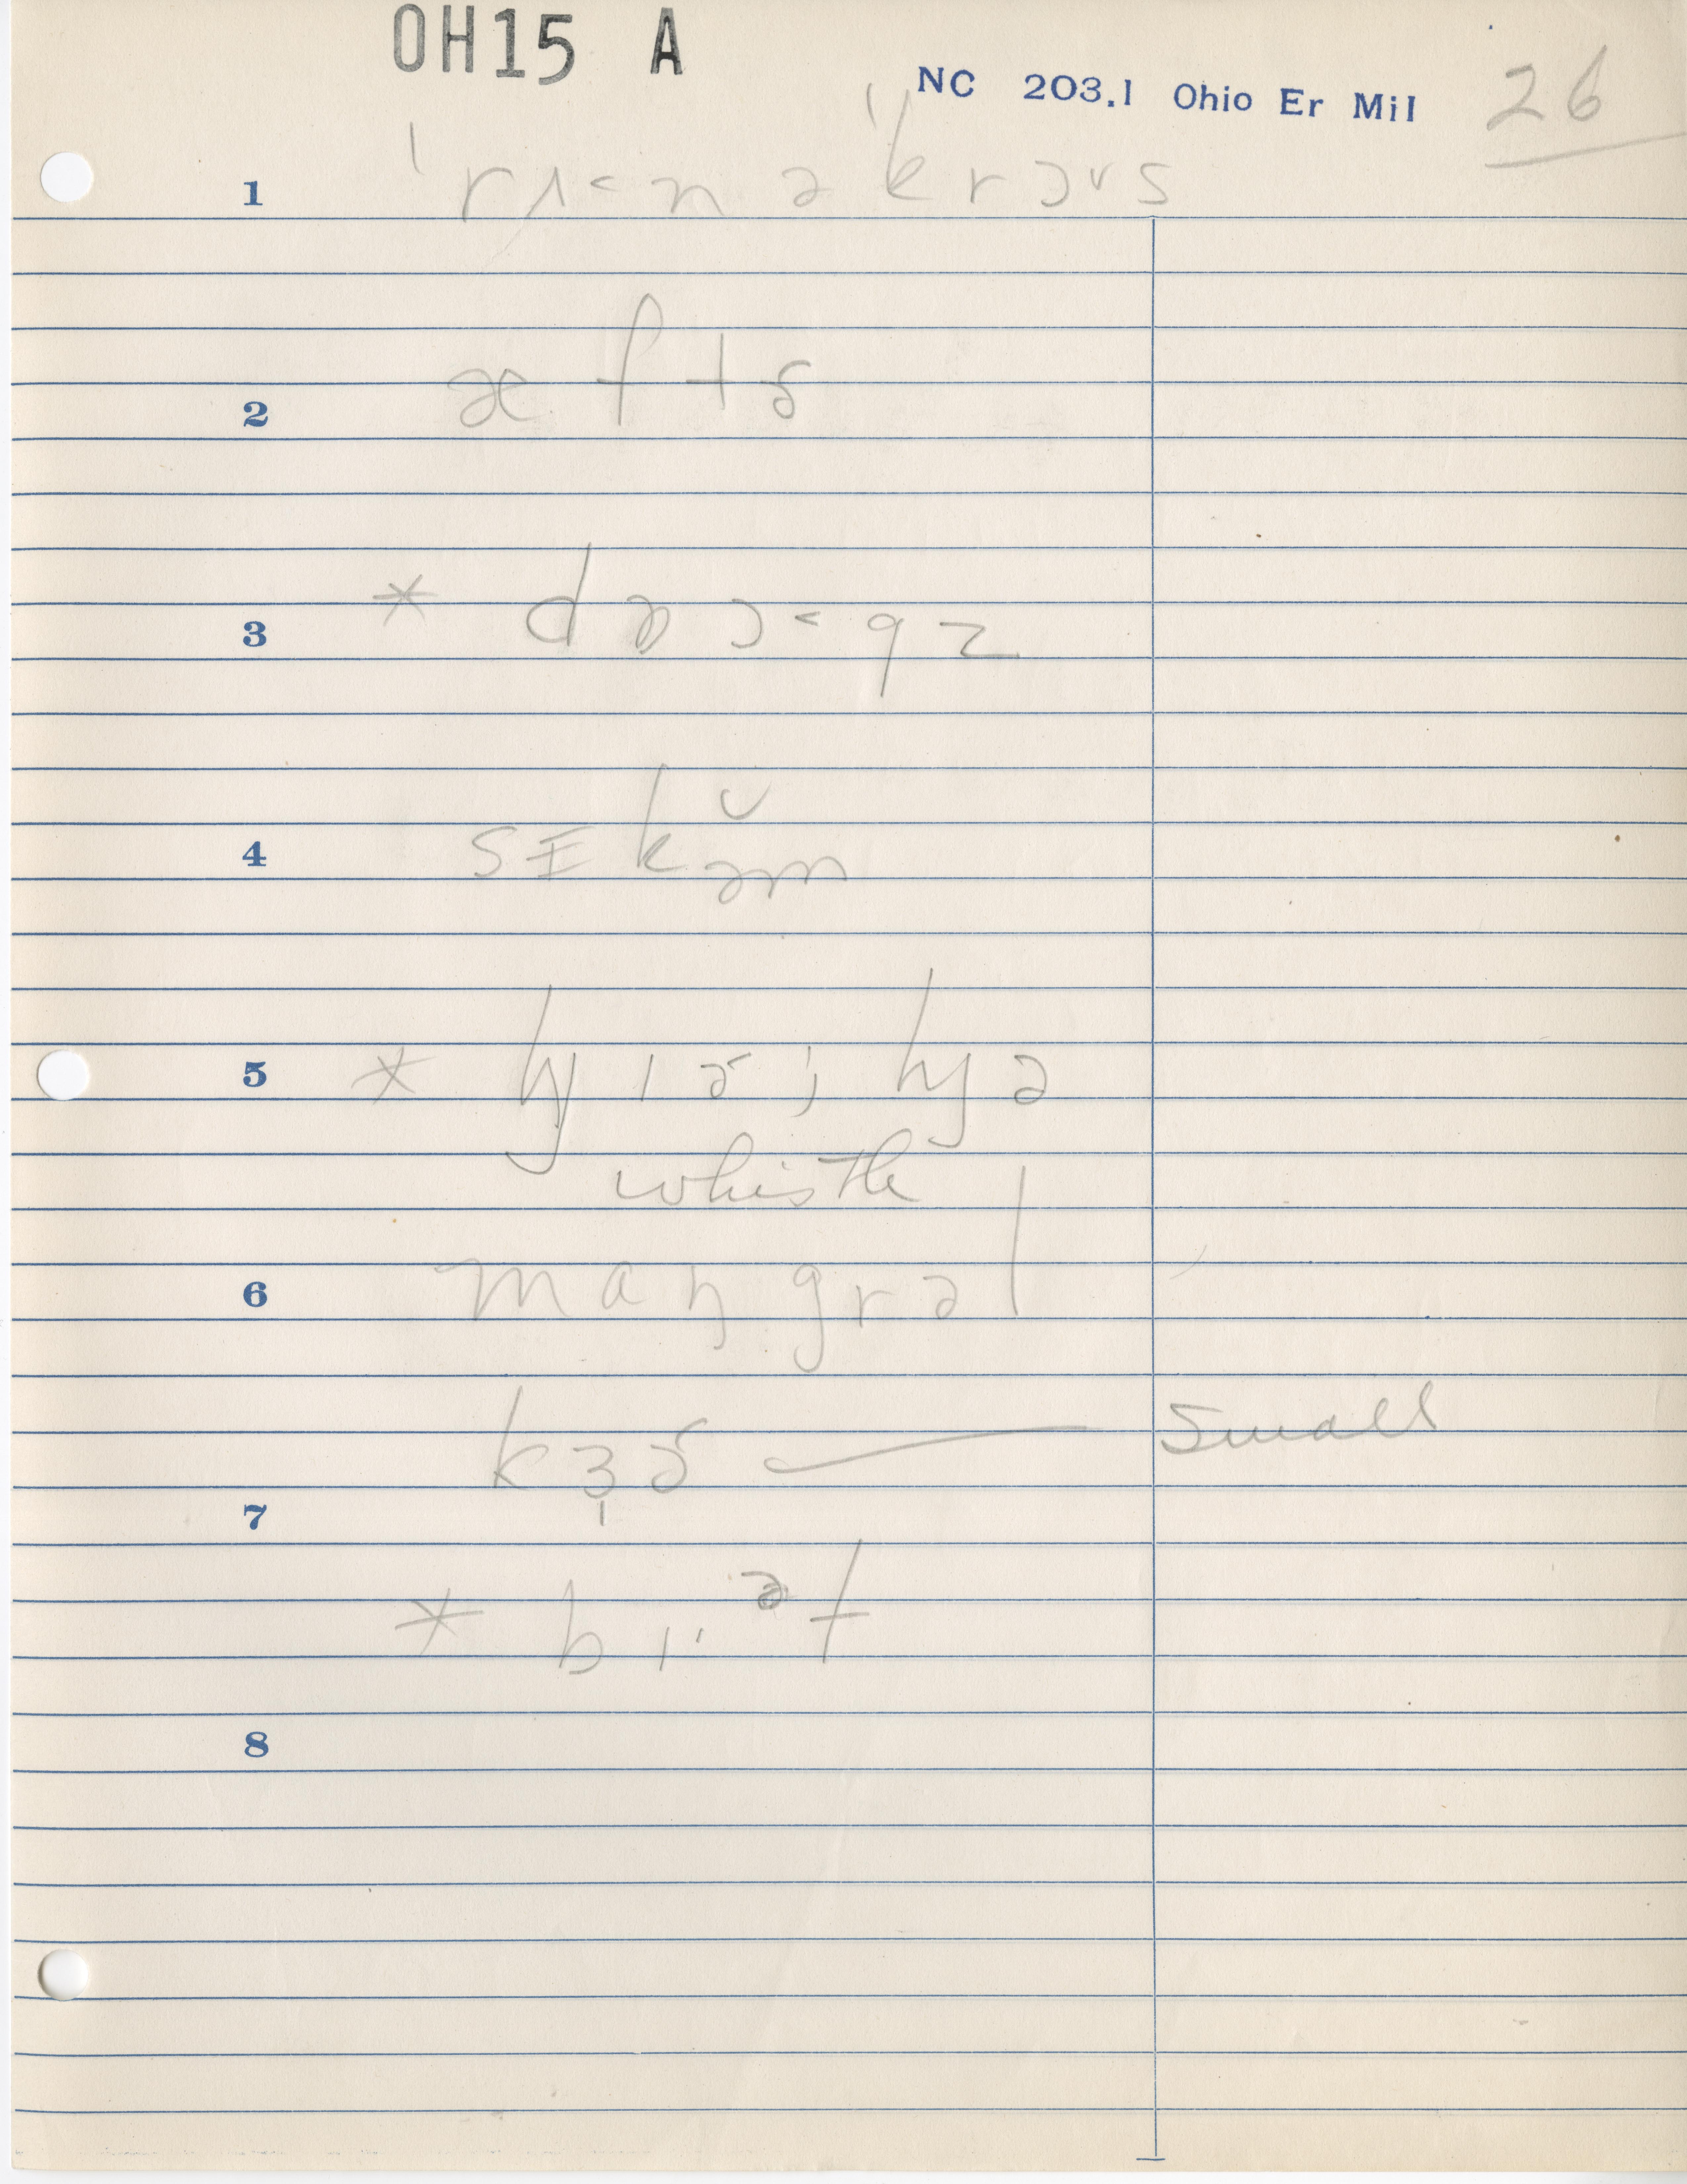 OH15 A
NC 203.1 Ohio Er Mil 26
1 ˈrʌ˂n əˈˈkrɔᵛs
2 æftɚ
3 * dɒɔ˂gz
4 sɪkə̆m
5 * hjɪɚ; hjə
whistle
6 maŋgrəl
kɜ̩ɚ — small
7
* bɪ··ᵊt
8